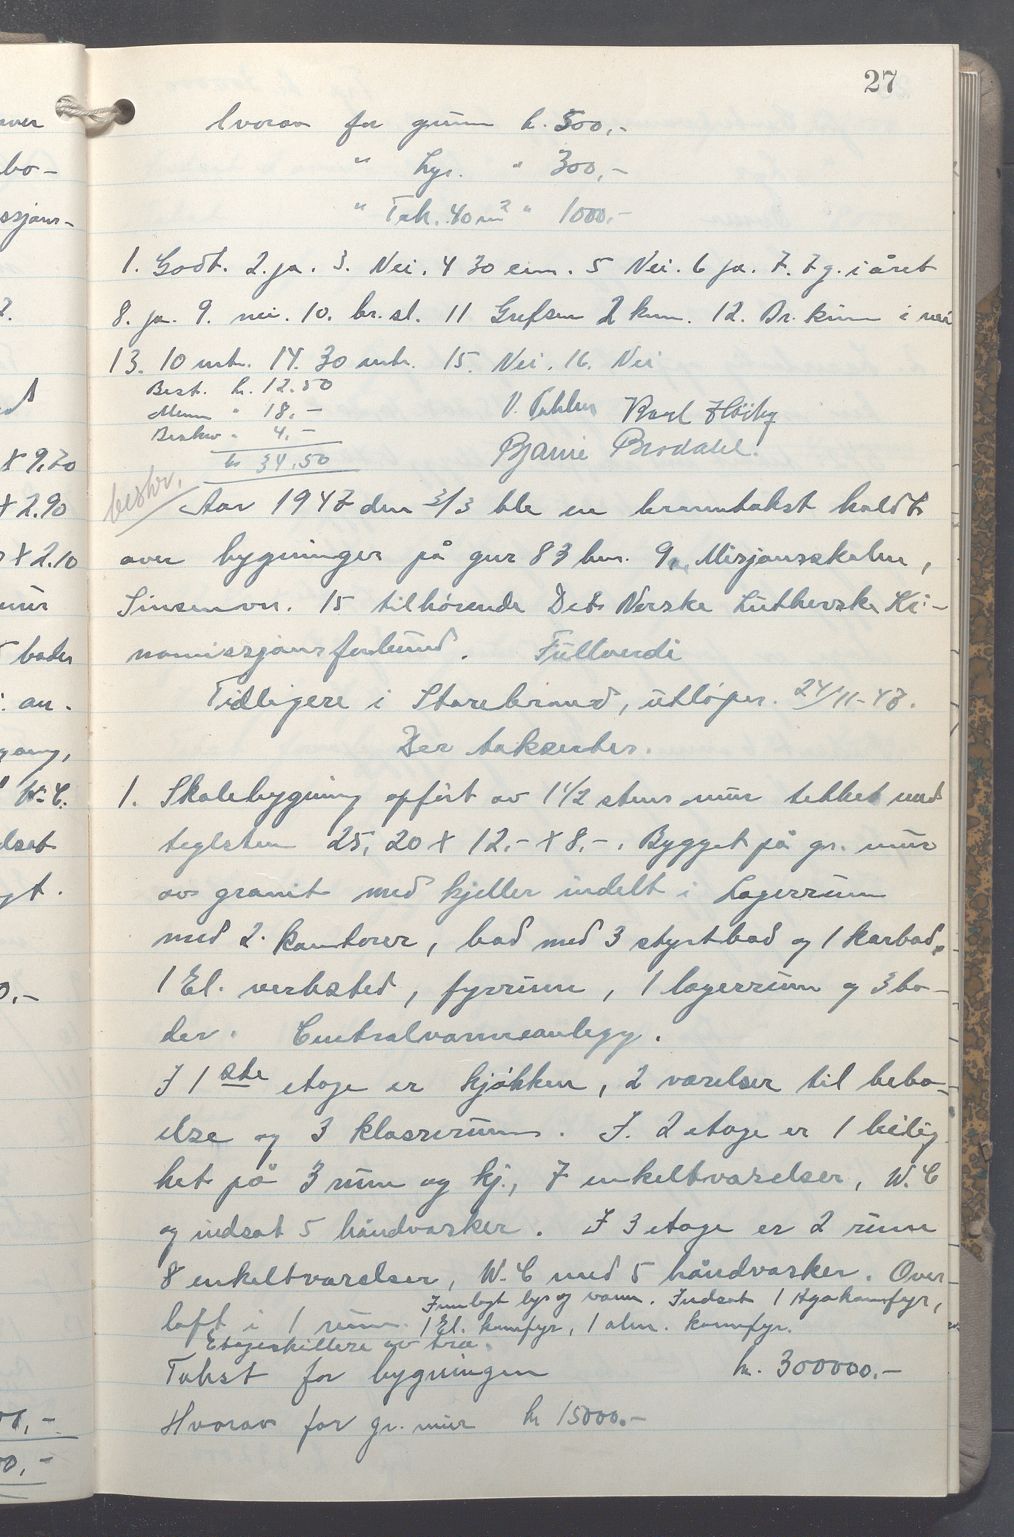 27
hvorav for grmur kr. 500,-
" Lys. " 300,-
" Tak. 40 m² " 1000.-
1. Godt. 2. ja. 3. Nei. 4 30 cm. 5 Nei. 6 ja. 7. 7 g. i året
8. ja. 9. nei. 10. br. sl. 11 Grefsen 2 km. 12. Br. kum i nær
13. 10 mt. 14. 30 mtr. 15. Nei. 16. Nei
Best. kr. 12.50
Menn " 18,-
Beskr " 4,-
kr 34,50
V. Karl Høiby
Bjarne Brodahl.
beskr.
Aar 1947 den 3/3 ble en branntakst holdt
over bygninger på gnr 83 bnr. 9, Misjonsskolen,
Sinsenvn. 15 tilhørende Det Norske Lutherske Ki-
namissjonsforbund. Fullverdi
Tidligere i Storebrand, utløper. 24/11-47.
Der taksertes.
1. Skolebygning opført av 1 1/2 stens mur tekket med
teglsten 25,20 x 12,- x 8,-. Bygget på gr. mur
av granit med kjeller indelt i Lagerrum
med 2 kontorer, bad med 3 styrtbad og 1 karbad.
1 El. verksted, fyrrum, 1 lagerrum og 3 bo-
der. Centralvarmeanlegg.
I 1ste etage er kjøkken, 2 værelser til bebo-
else og 3 klasserum. I. 2 etage er 1 leilig
het på 3 rum og kj., 7 enkeltværelser, W.C
og indsat 5 håndvasker. I 3 etage er 2 rum
8 enkeltværelser, W.C med 5 håndvasker. Over-
loft i 1 rum. Innlagt lys og vann. Indsat 1 Agakomfyr,
1 El. komfyr, 1 alm. komfyr.
Etageskillere av tre.
Takst for bygningen kr. 300000.-
Hvorav for gr. mur kr 15000.-